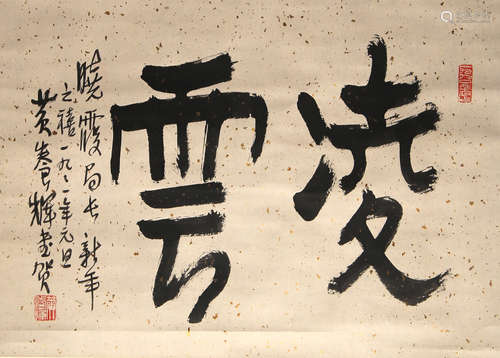 凌雲
曉霞局長新年
之禧一九八一年元旦
黄養輝書賀